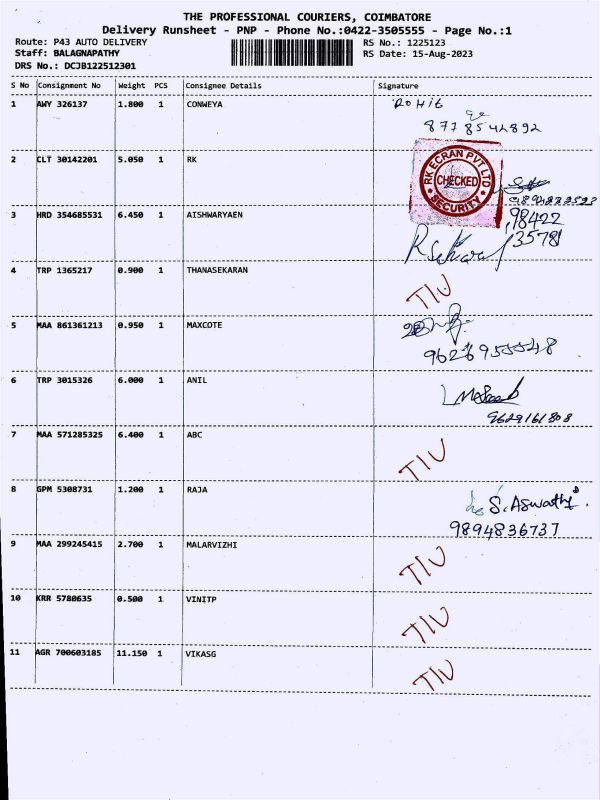 THE PROFESSIONAL COURIERS, COIMBATORE
Delivery Runsheet - PNP - Phone No.:0422-3505555 - Page No.:1
Route: P43 AUTO DELIVERY RS No.: 1225123
Staff: BALAGNAPATHY RS Date: 15-Aug-2023
DRS No.: DCJB122512301
S No Consignment No Weight PCS Consignee Details Signature
1 AWY 326137 1.800 1 CONWEYA ROHIG
8778542892
2 CLT 30142201 5.050 1 RK
RK ECRAN PVT LTD
CHECKED
SECURITY
3 HRD 354685531 6.450 1 AISHWARYAEN 98422
35781
4 TRP 1365217 0.900 1 THANASEKARAN TIU
5 MAA 861361213 0.950 1 MAXCOTE
6 TRP 3015326 6.000 1 ANIL
9629161808
7 MAA 571285325 6.400 1 ABC TIU
8 GPM 5308731 1.200 1 RAJA S. Aswathi
9894836737
9 MAA 299245415 2.700 1 MALARVIZHI TIU
10 KRR 5780635 0.500 1 VINITP TIU
11 AGR 700603185 11.150 1 VIKASG TIU